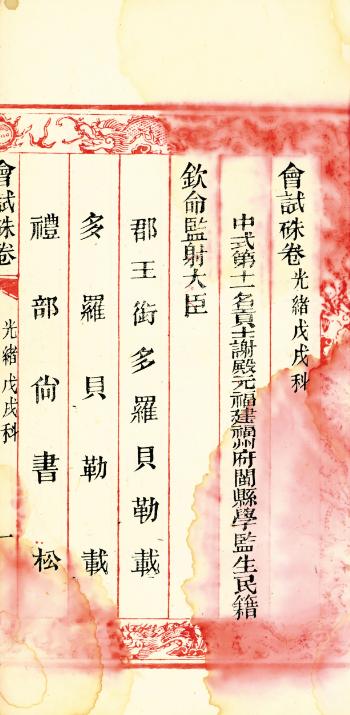 會試硃卷光緒戊戌科
中式第十一名貢士謝殿元福建福州府閩縣學監生民籍
欽命監射大臣
郡王銜多羅貝勒載
多羅貝勒載
禮部尙書松
會試硃卷 光緒戊戌科 一